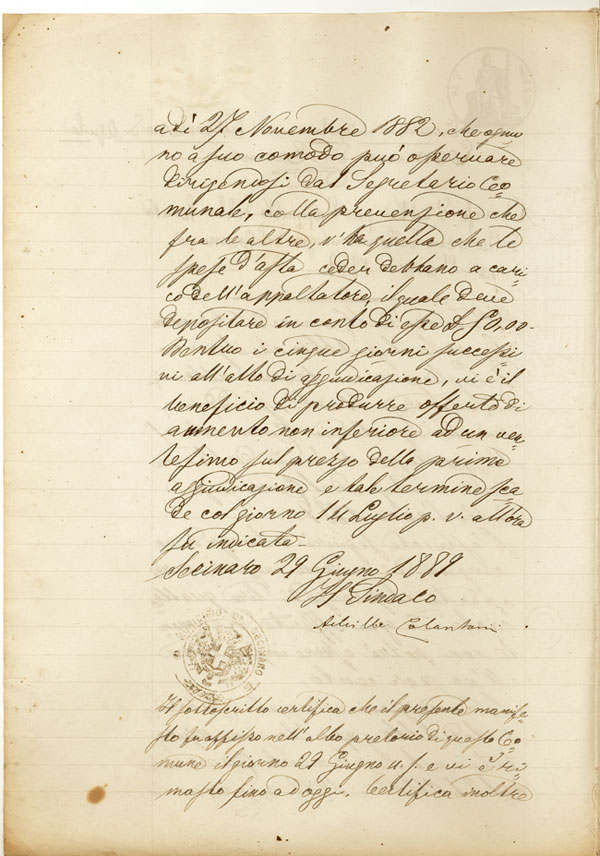 adì 27 Novembre 1882, che ognu
no a suo comodo può osservare
dirigendosi dal Segretario Co=
munale, colla prevenzione che
fra le altre, v'ha quella che le
spese d'asta ceder debbano a cari=
co dell'appaltatore, il quale deve
depositare in conto di esse £ 50,00-
Dentro i cinque giorni successi
vi all'atto di aggiudicazione, vi è il
beneficio di produrre offerta di
aumento non inferiore ad un ven=
tesimo sul prezzo della prima
aggiudicazione e tale termine sca=
de col giorno 14 Luglio p. v. all'ora
su indicata-
Secinaro 29 Giugno 1889
Il Sindaco
Achille Colantoni
SECINARO
Il sottoscritto certifica che il presente manife=
sto fu affisso nell'albo pretorio di questo Co=
mune il giorno 29 Giugno u. s. e vi è ri=
masto fino ad oggi. Certifica inoltre